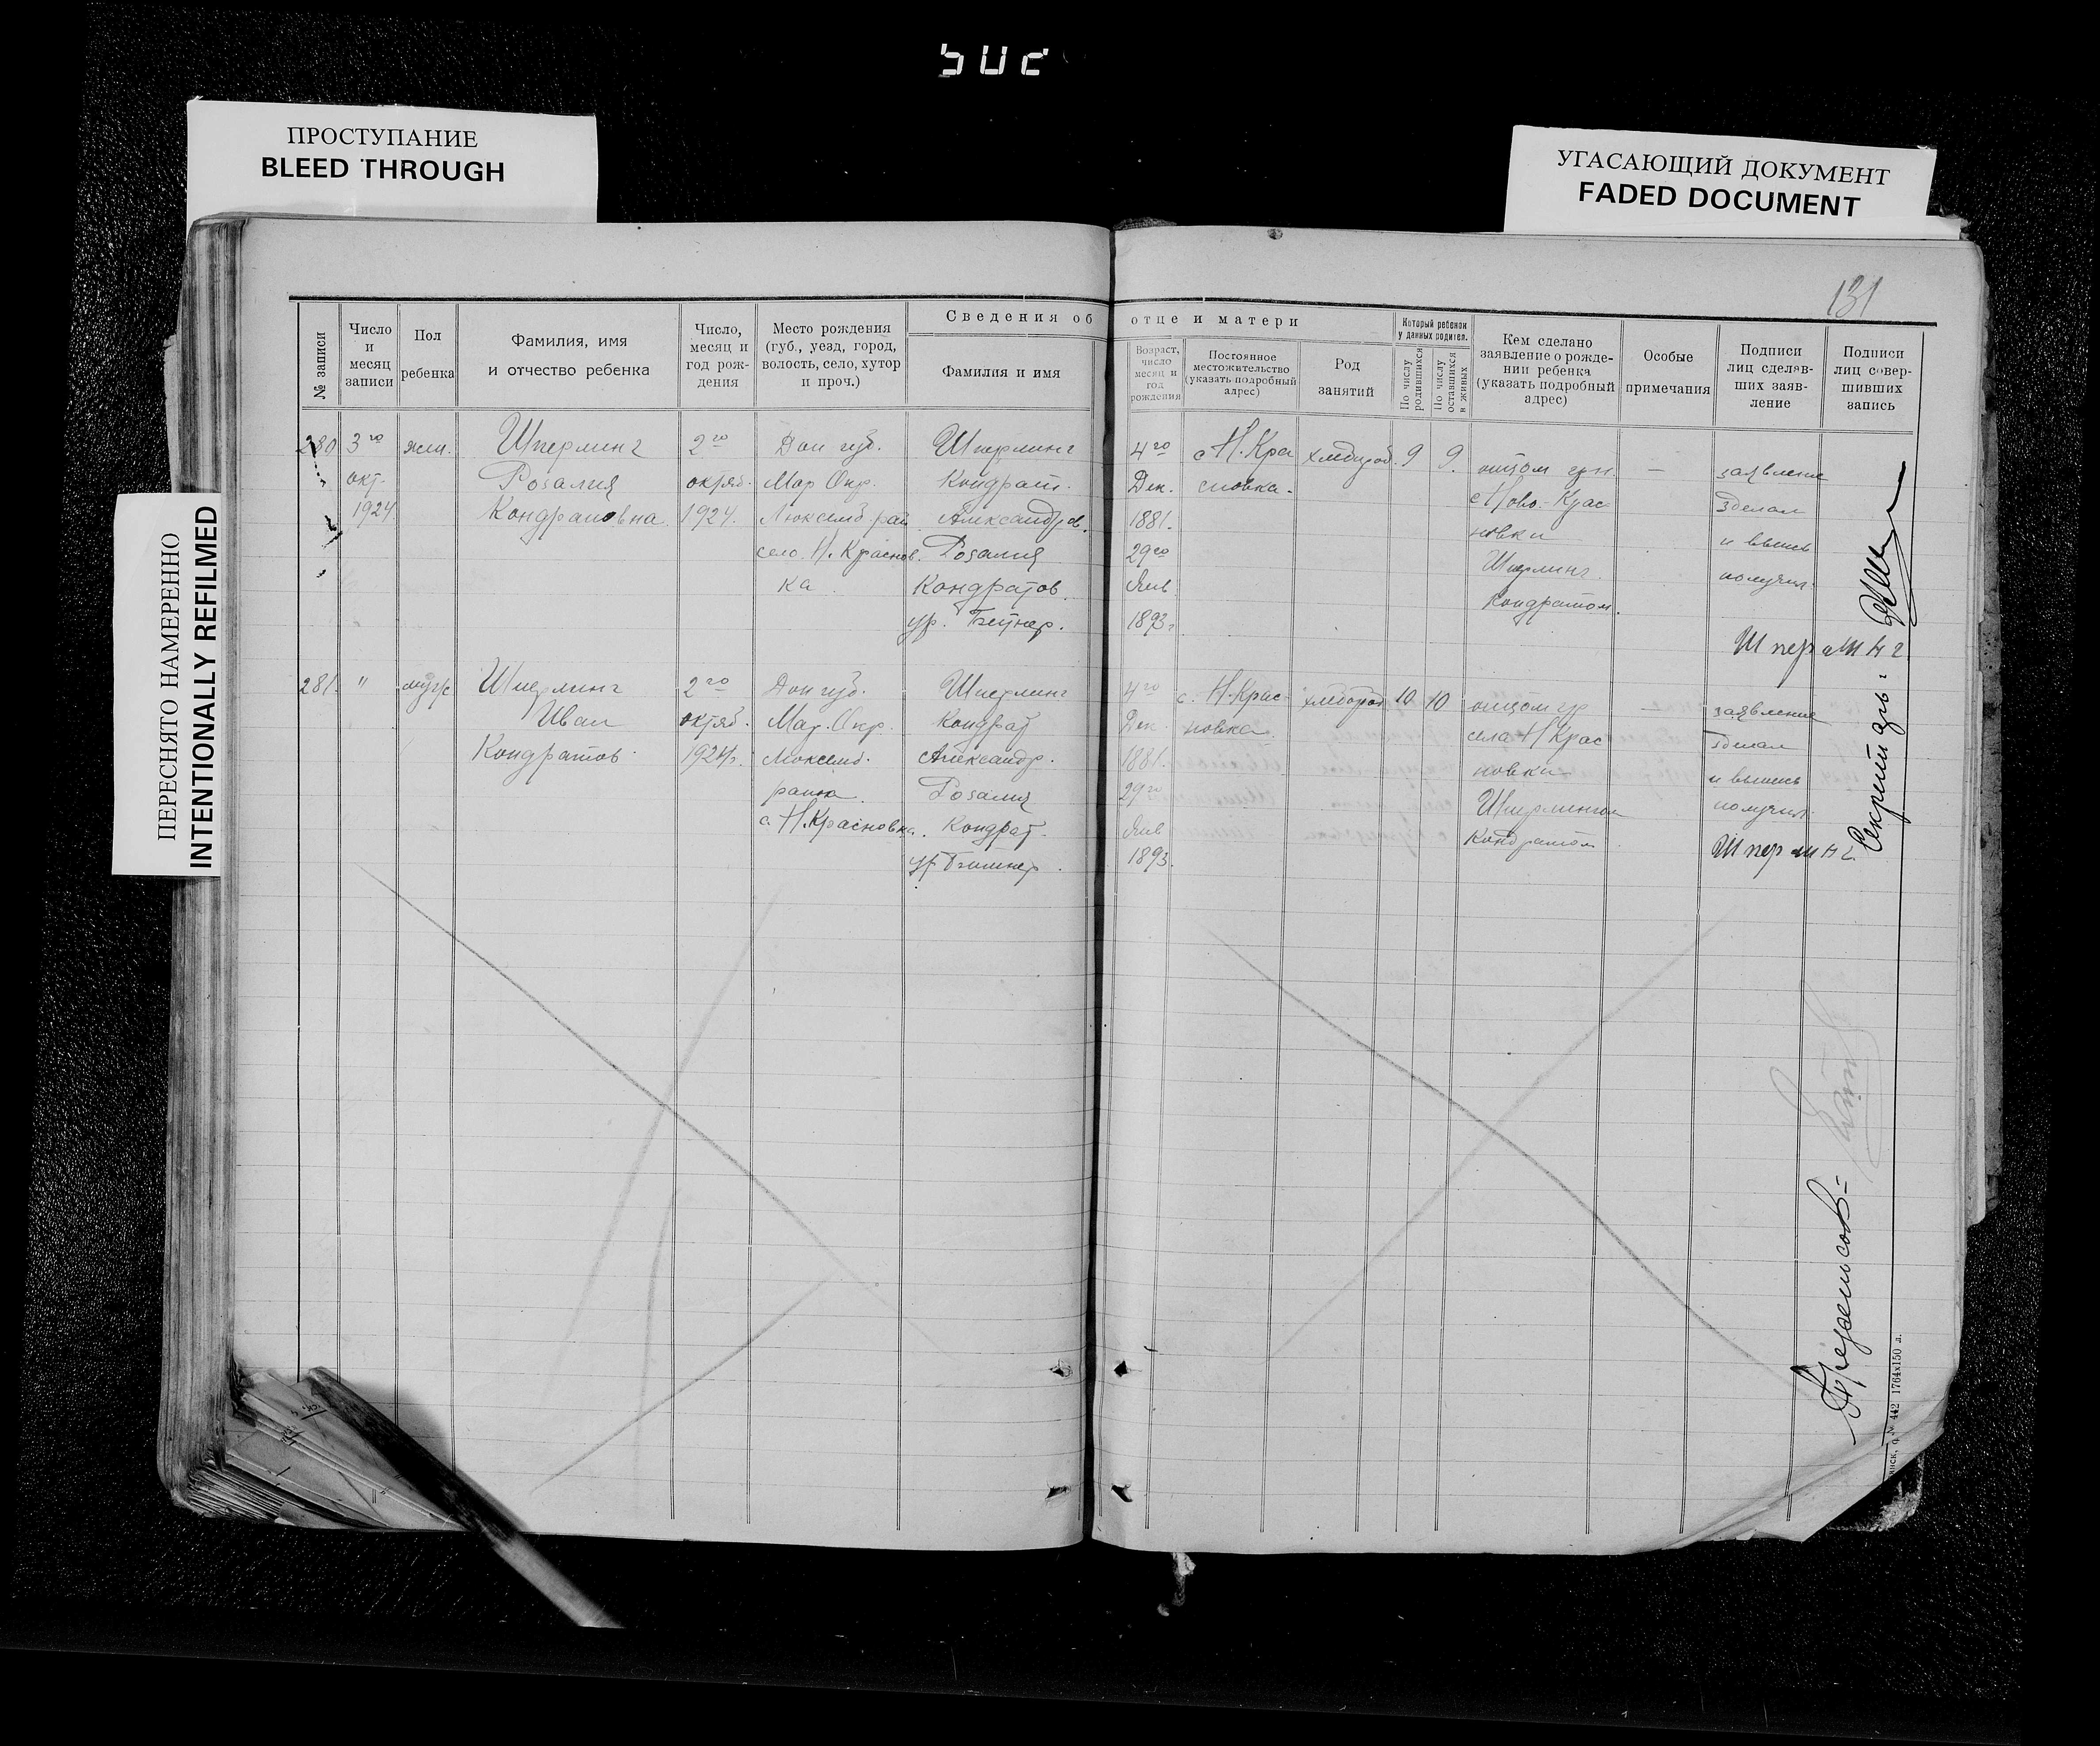 ПРОСТУПАНИЕ
BLEED THROUGH
УГАСАЮЩИЙ ДОКУМЕНТ
FADED DOCUMENT
ПЕРЕСНЯТО НАМЕРЕННО
INTENTIONALLY REFILMED
131
№ записи
Число и месяц записи
Пол ребенка
Фамилия, имя и отчество ребенка
Число, месяц и год рождения
Место рождения (губ., уезд, город, волость, село, хутор и проч.)
Сведения об отце и матери
Фамилия и имя
Возраст, число месяц и год рождения
Постоянное местожительство (указать подробный адрес)
Род занятий
Который ребенок у данных родител.
По числу родившихся
По числу оставшихся в живых
Кем сделано заявление о рождении ребенка (указать подробный адрес)
Особые примечания
Подписи лиц сделавших заявление
Подписи лиц совершивших запись
280
3го
окт.
1924
жен.
Шперлинг
Розалия
2го
октяб.
1924.
Дон губ.
Мар Окр.
село Н. Краснов
ка
Шперлинг
Кондрат.
Александров.
Розалия
Кондратов.
ур.
4го
Дек.
1881.
29го
Янв
1893г
с Н. Кра
сновка.
9
9.
отцом гр.
с Ново-Крас
новки
Шперлинг
Кондратом.
—
заявление
зделал
и выпись
получил.
Шперлинг
281.
"
муж
Шперлинг
Иван
Кондратов
2го
октяб.
1924г.
Дон губ.
Мар. Окр.
района
с. Н. Красновка.
Шперлинг
Кондрат
Александр.
Розалия
Кондрат.
ур
4го
Дек
1881.
29го
Янв
1893.
с. Н. Крас-
новка.
хлебороб
10
10
отцом гр
села Н Крас
новки
Шперлингом
Кондратом
—
заявление
зделал
и выпись
получил.
Шперлинг
Секретарь:
442 1764х150 л.